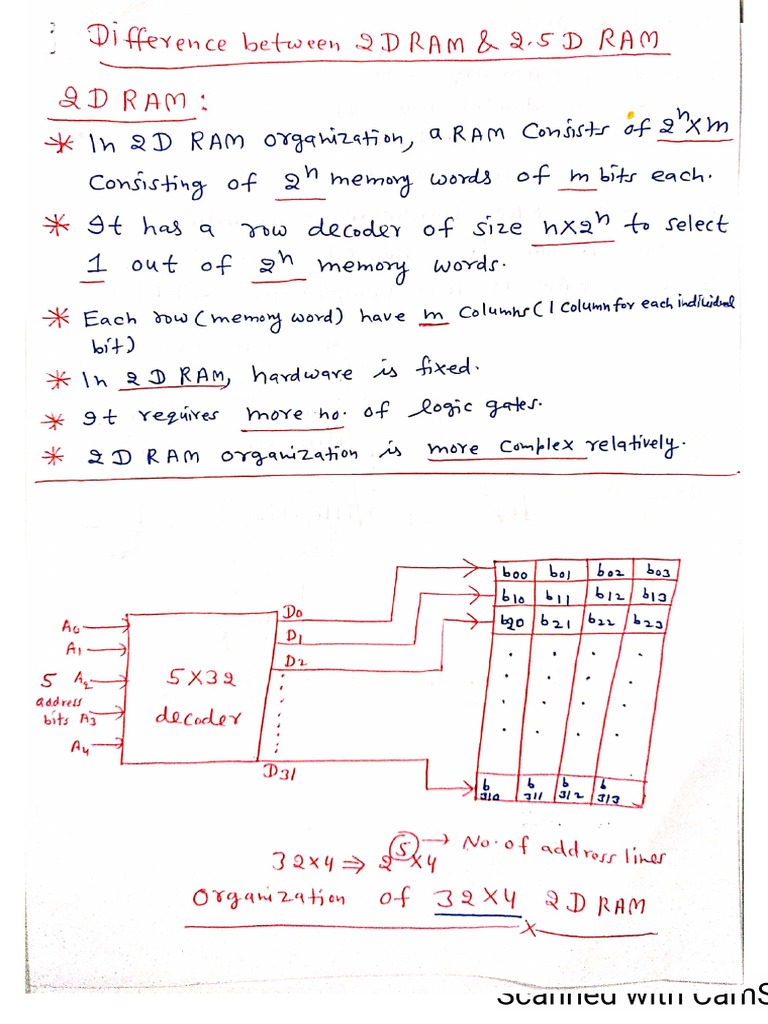 Difference between 2D RAM & 2.5 D RAM
2D RAM :
* In 2D RAM organization, a RAM Consists of 2ⁿxm
Consisting of 2ⁿ memory words of m bits each.
* It has a row decoder of size nx2ⁿ to select
1 out of 2ⁿ memory words.
* Each row (memory word) have m Columns (1 Column for each individual
bit)
* In 2D RAM, hardware is fixed.
* It requires more no. of logic gates.
* 2D RAM organization is more Complex relatively.
b00 b01 b02 b03
D0
b10 b11 b12 b13
A0
D1
b20 b21 b22 b23
A1
D2
5 A2
5X32
address
bits A3
decoder
A4
D31
b310 b311 b312 b313
32x4 ⇒ 2⁵x4 → No. of address lines
Organization of 32X4 2D RAM
x
Scanned with CamS